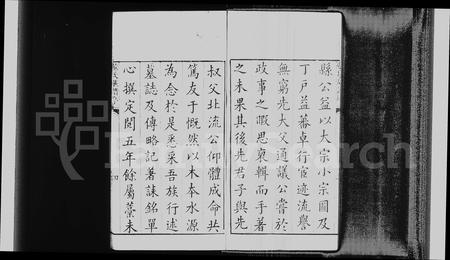 縣公益以大宗小宗圖及
丁戶益蕃卓行宦迹流譽
無窮先大父通議公嘗於
政事之暇思裒輯而手著
之未果其後先君子與先
叔父北流公仰體成命共
篤友于慨然以木本水源
為念於是悉采吾族行述
墓誌及傳略記著誄銘單
心撰定閱五年餘屬藳未